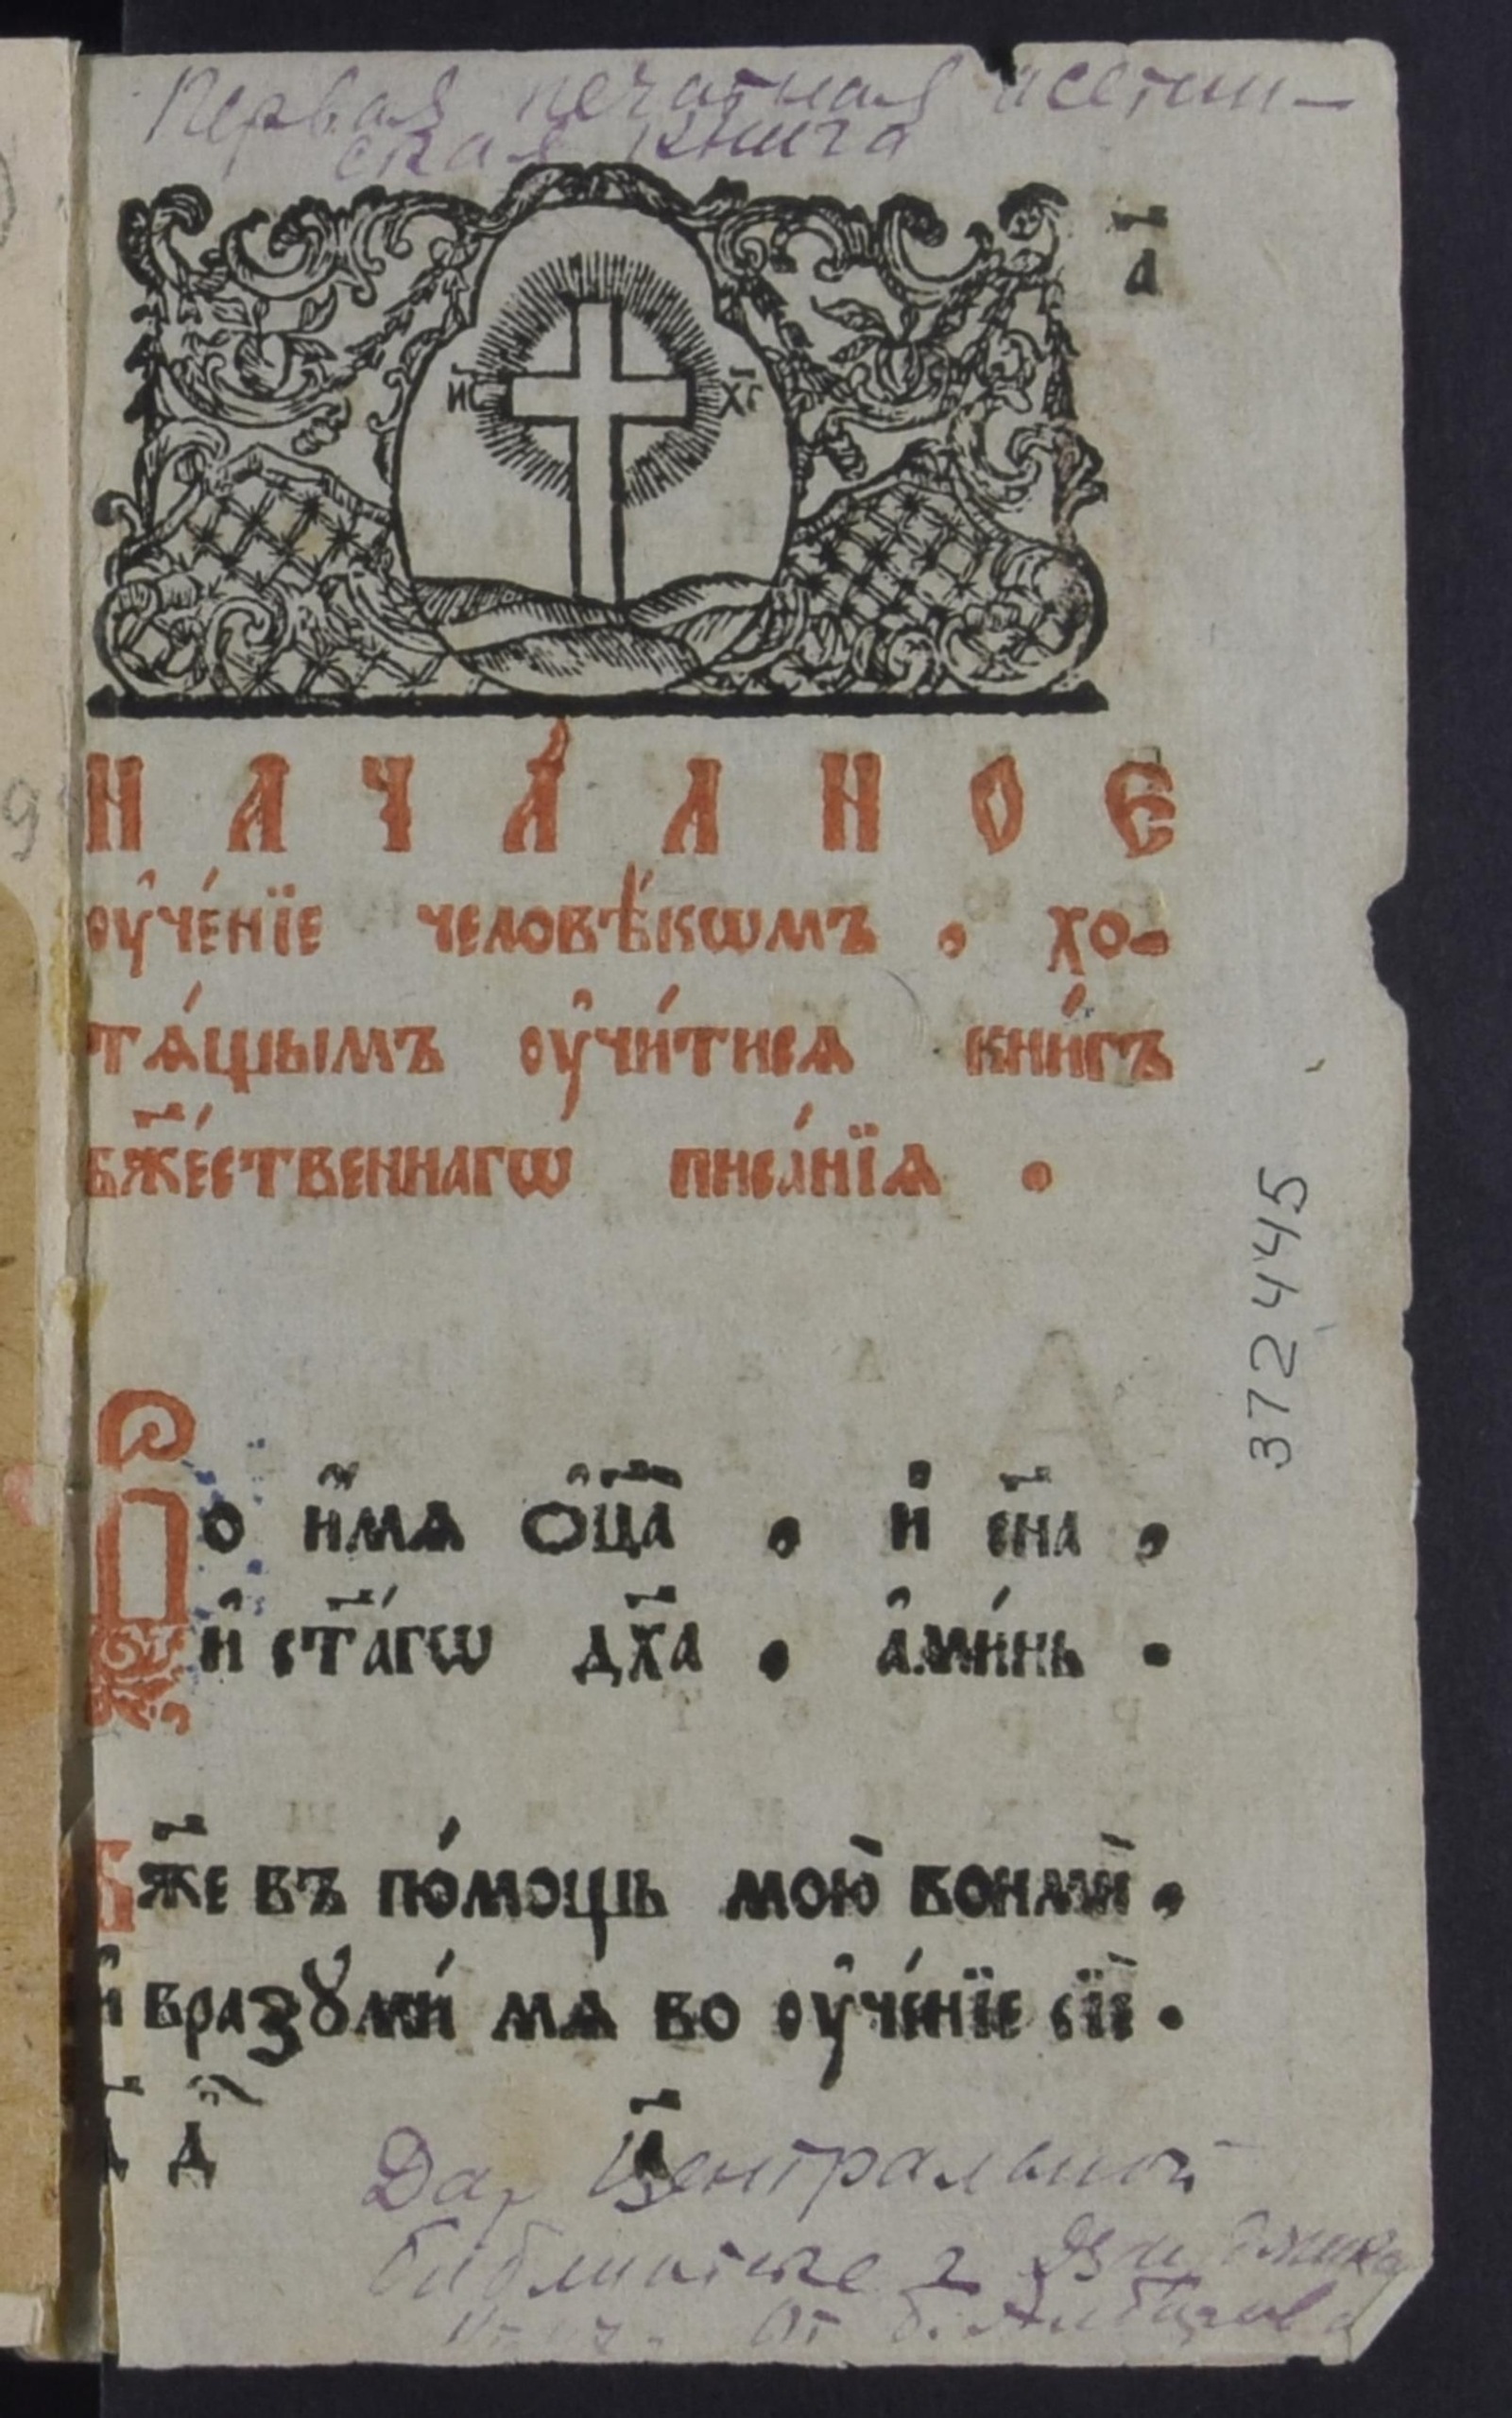 Первая печатная осетин-
ская книга
а҃
ИС҃ ХС҃
НАЧА́ЛНОЕ
ᲂу҆че́нїе человѣ́кѡмъ . хо-
тѧ́щымъ ᲂу҆чи́тисѧ кни́гъ
бж҃е́ственнагѡ писа́нїѧ .
Во и҆́мѧ ѻ҆ц҃а̀ , и҆ сн҃а ,
и҆ ст҃а́гѡ дх҃а , а҆ми́нь .
Бж҃е въ по́мощь мою̀ вонмѝ ,
и҆ вразꙋми́ мѧ во ᲂу҆че́нїе сїѐ .
372445
Дар Центральной
библиотеке г. Дзауджикау
От Б. Алборова